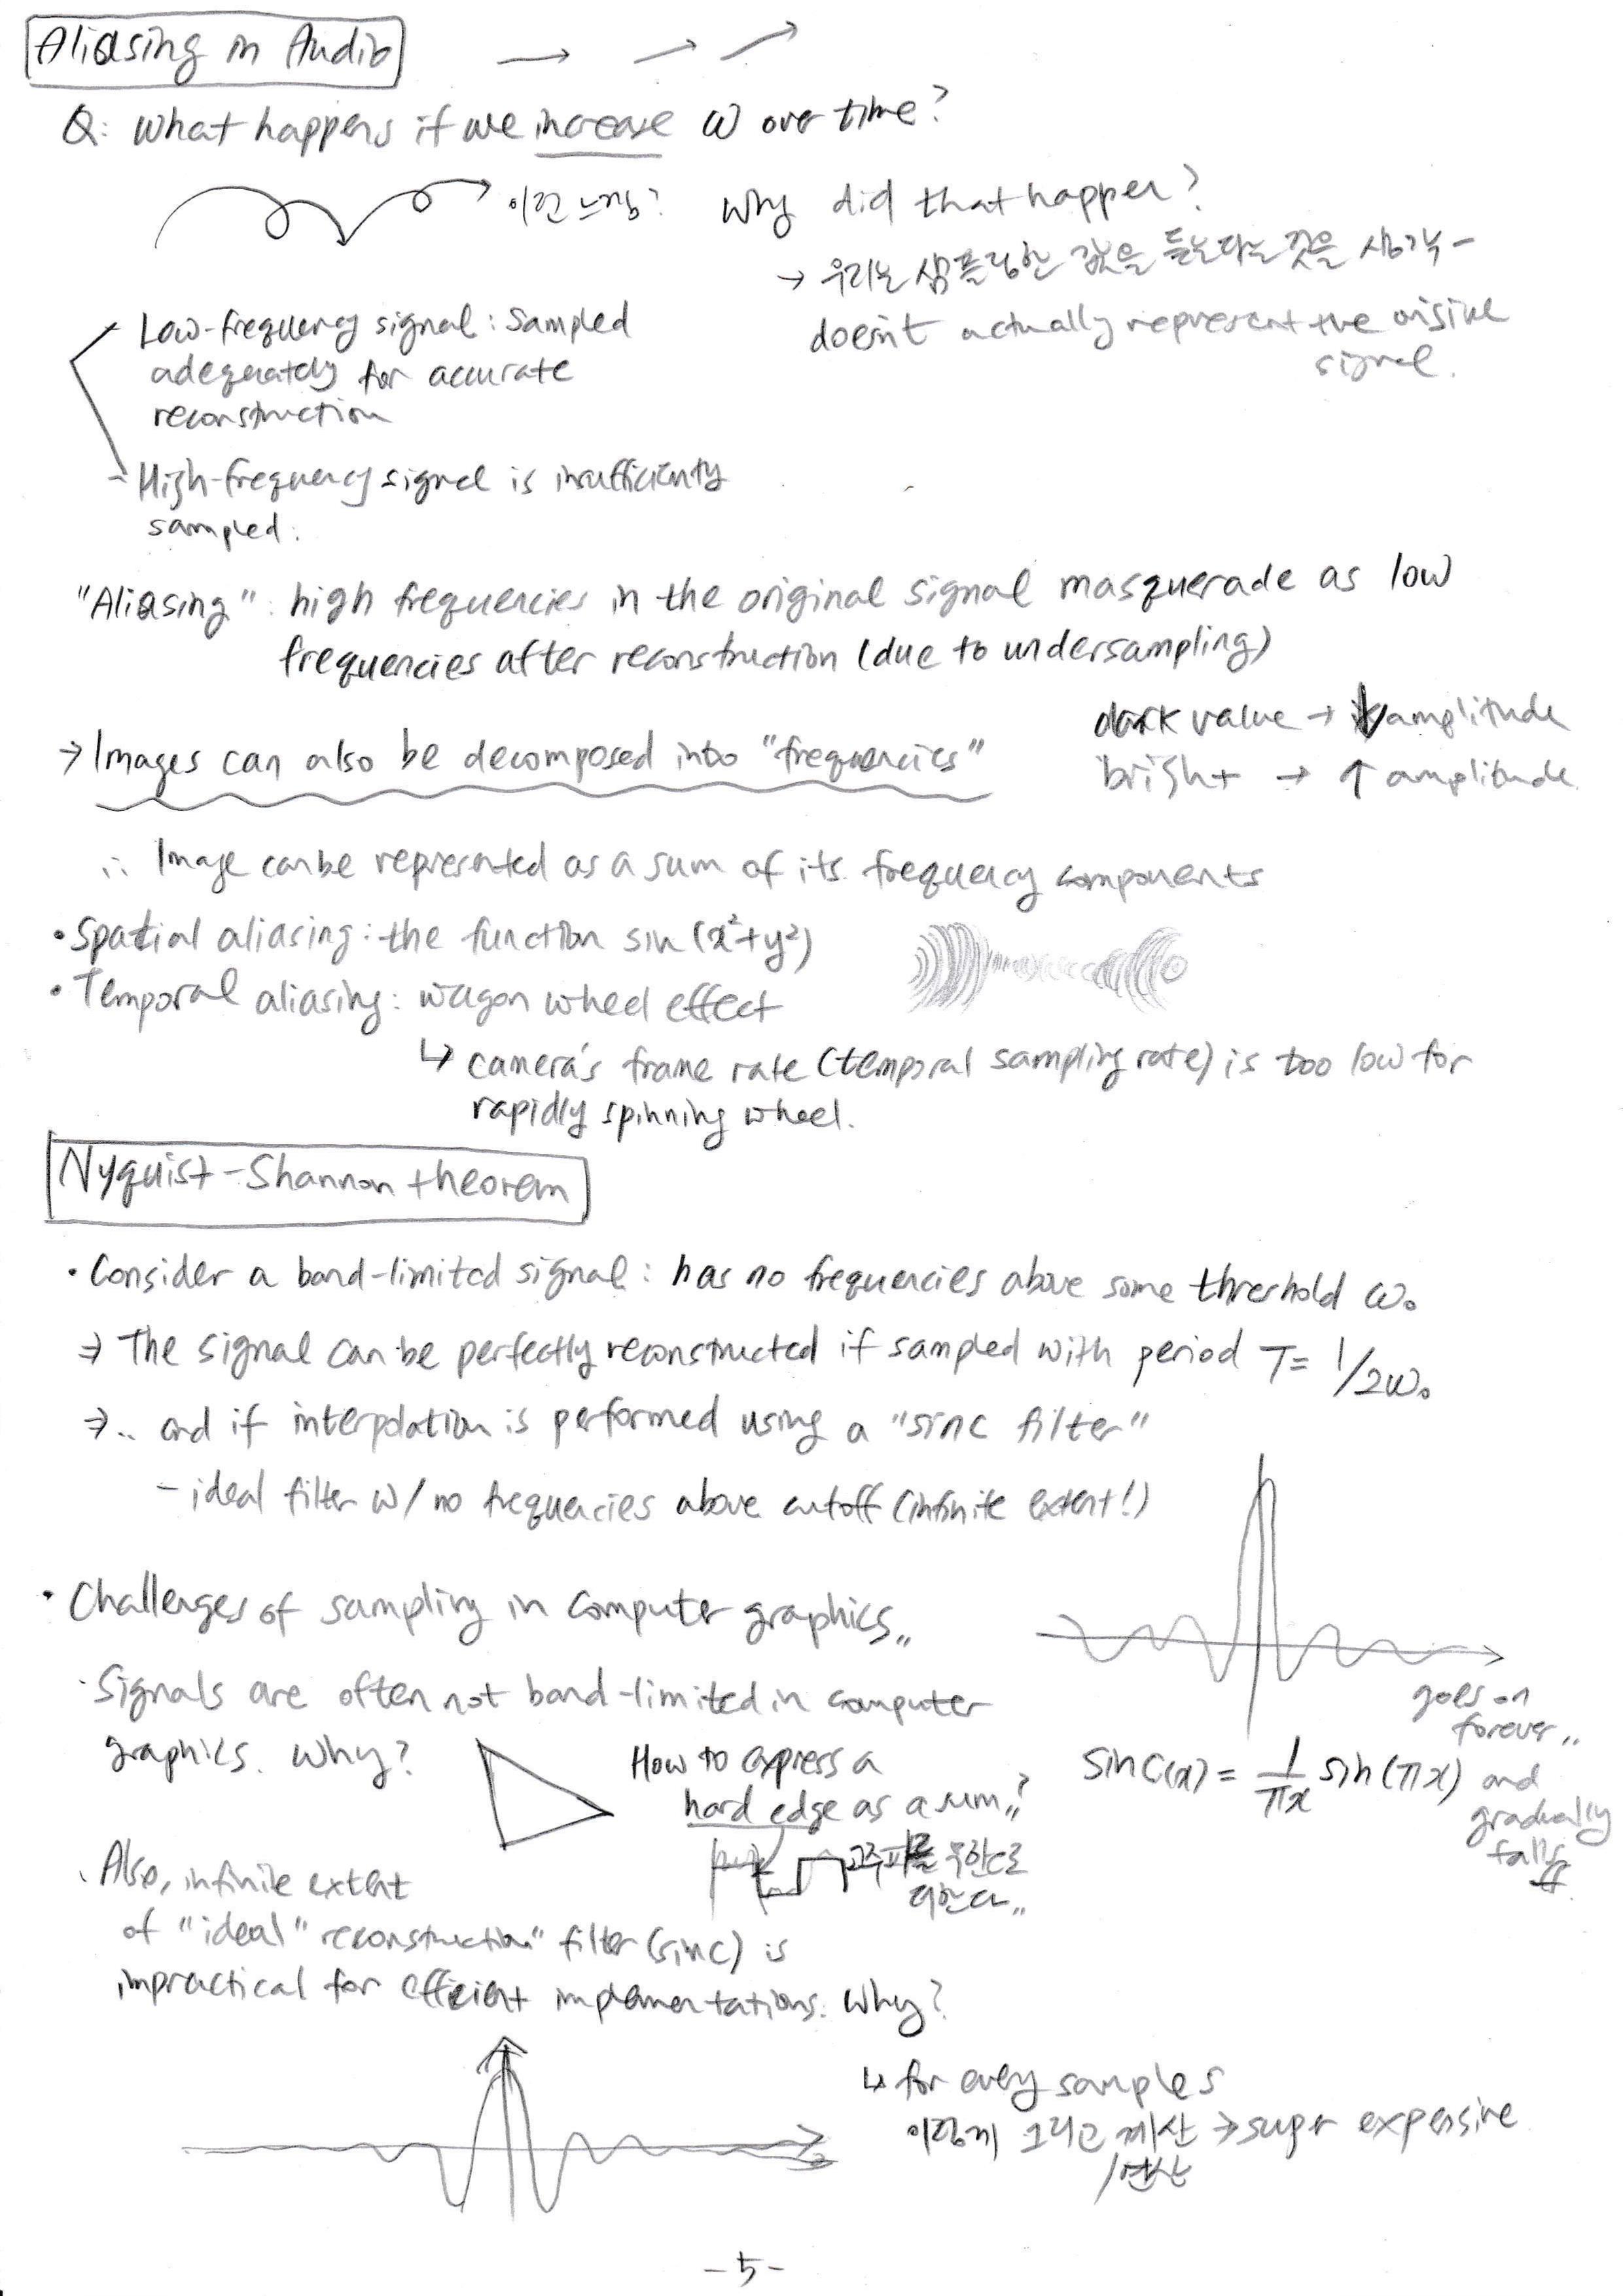 Aliasing in Audio
Q: What happens if we increase ω over time?
이런 느낌? Why did that happen?
→ 우리는 샘플링한 값을 듣는다는 것을 생각-
doesn't actually represent the
signal.
Low-frequency signal: Sampled
adequately for accurate
reconstruction
- High-frequency signal is insufficienty
sampled.
"Aliasing": high frequencies in the original signal masquerade as low
frequencies after reconstruction (due to undersampling)
dark value → ↓ amplitude
bright → ↑ amplitude
→ Images can also be decomposed into "frequencies"
∴ Image can be represented as a sum of its frequency components
• Spatial aliasing: the function sin(x²+y²)
• Temporal aliasing: wagon wheel effect
↳ camera's frame rate (temporal sampling rate) is too low for
rapidly spinning wheel.
Nyquist-Shannon theorem
• Consider a band-limited signal: has no frequencies above some threshold ω₀
⇒ The signal can be perfectly reconstructed if sampled with period T= 1/2ω₀
⇒ .. and if interpolation is performed using a "sinc filter"
- ideal filter w/ no frequencies above cutoff (infinite extent!)
• Challenges of sampling in computer graphics,,
· Signals are often not band-limited in computer
graphics. Why?
How to express a
hard edge as a sum,,?
고주파를 무한대로
더한다,,
goes on
forever,,
sinc(x) = 1/πx sin(πx) and
gradually
falls
· Also, infinite extent
of "ideal" reconstruction" filter (sinc) is
impractical for efficient implementations. Why?
↳ for every samples
이렇게 그리고 계산 → super expensive
/연산
-5-